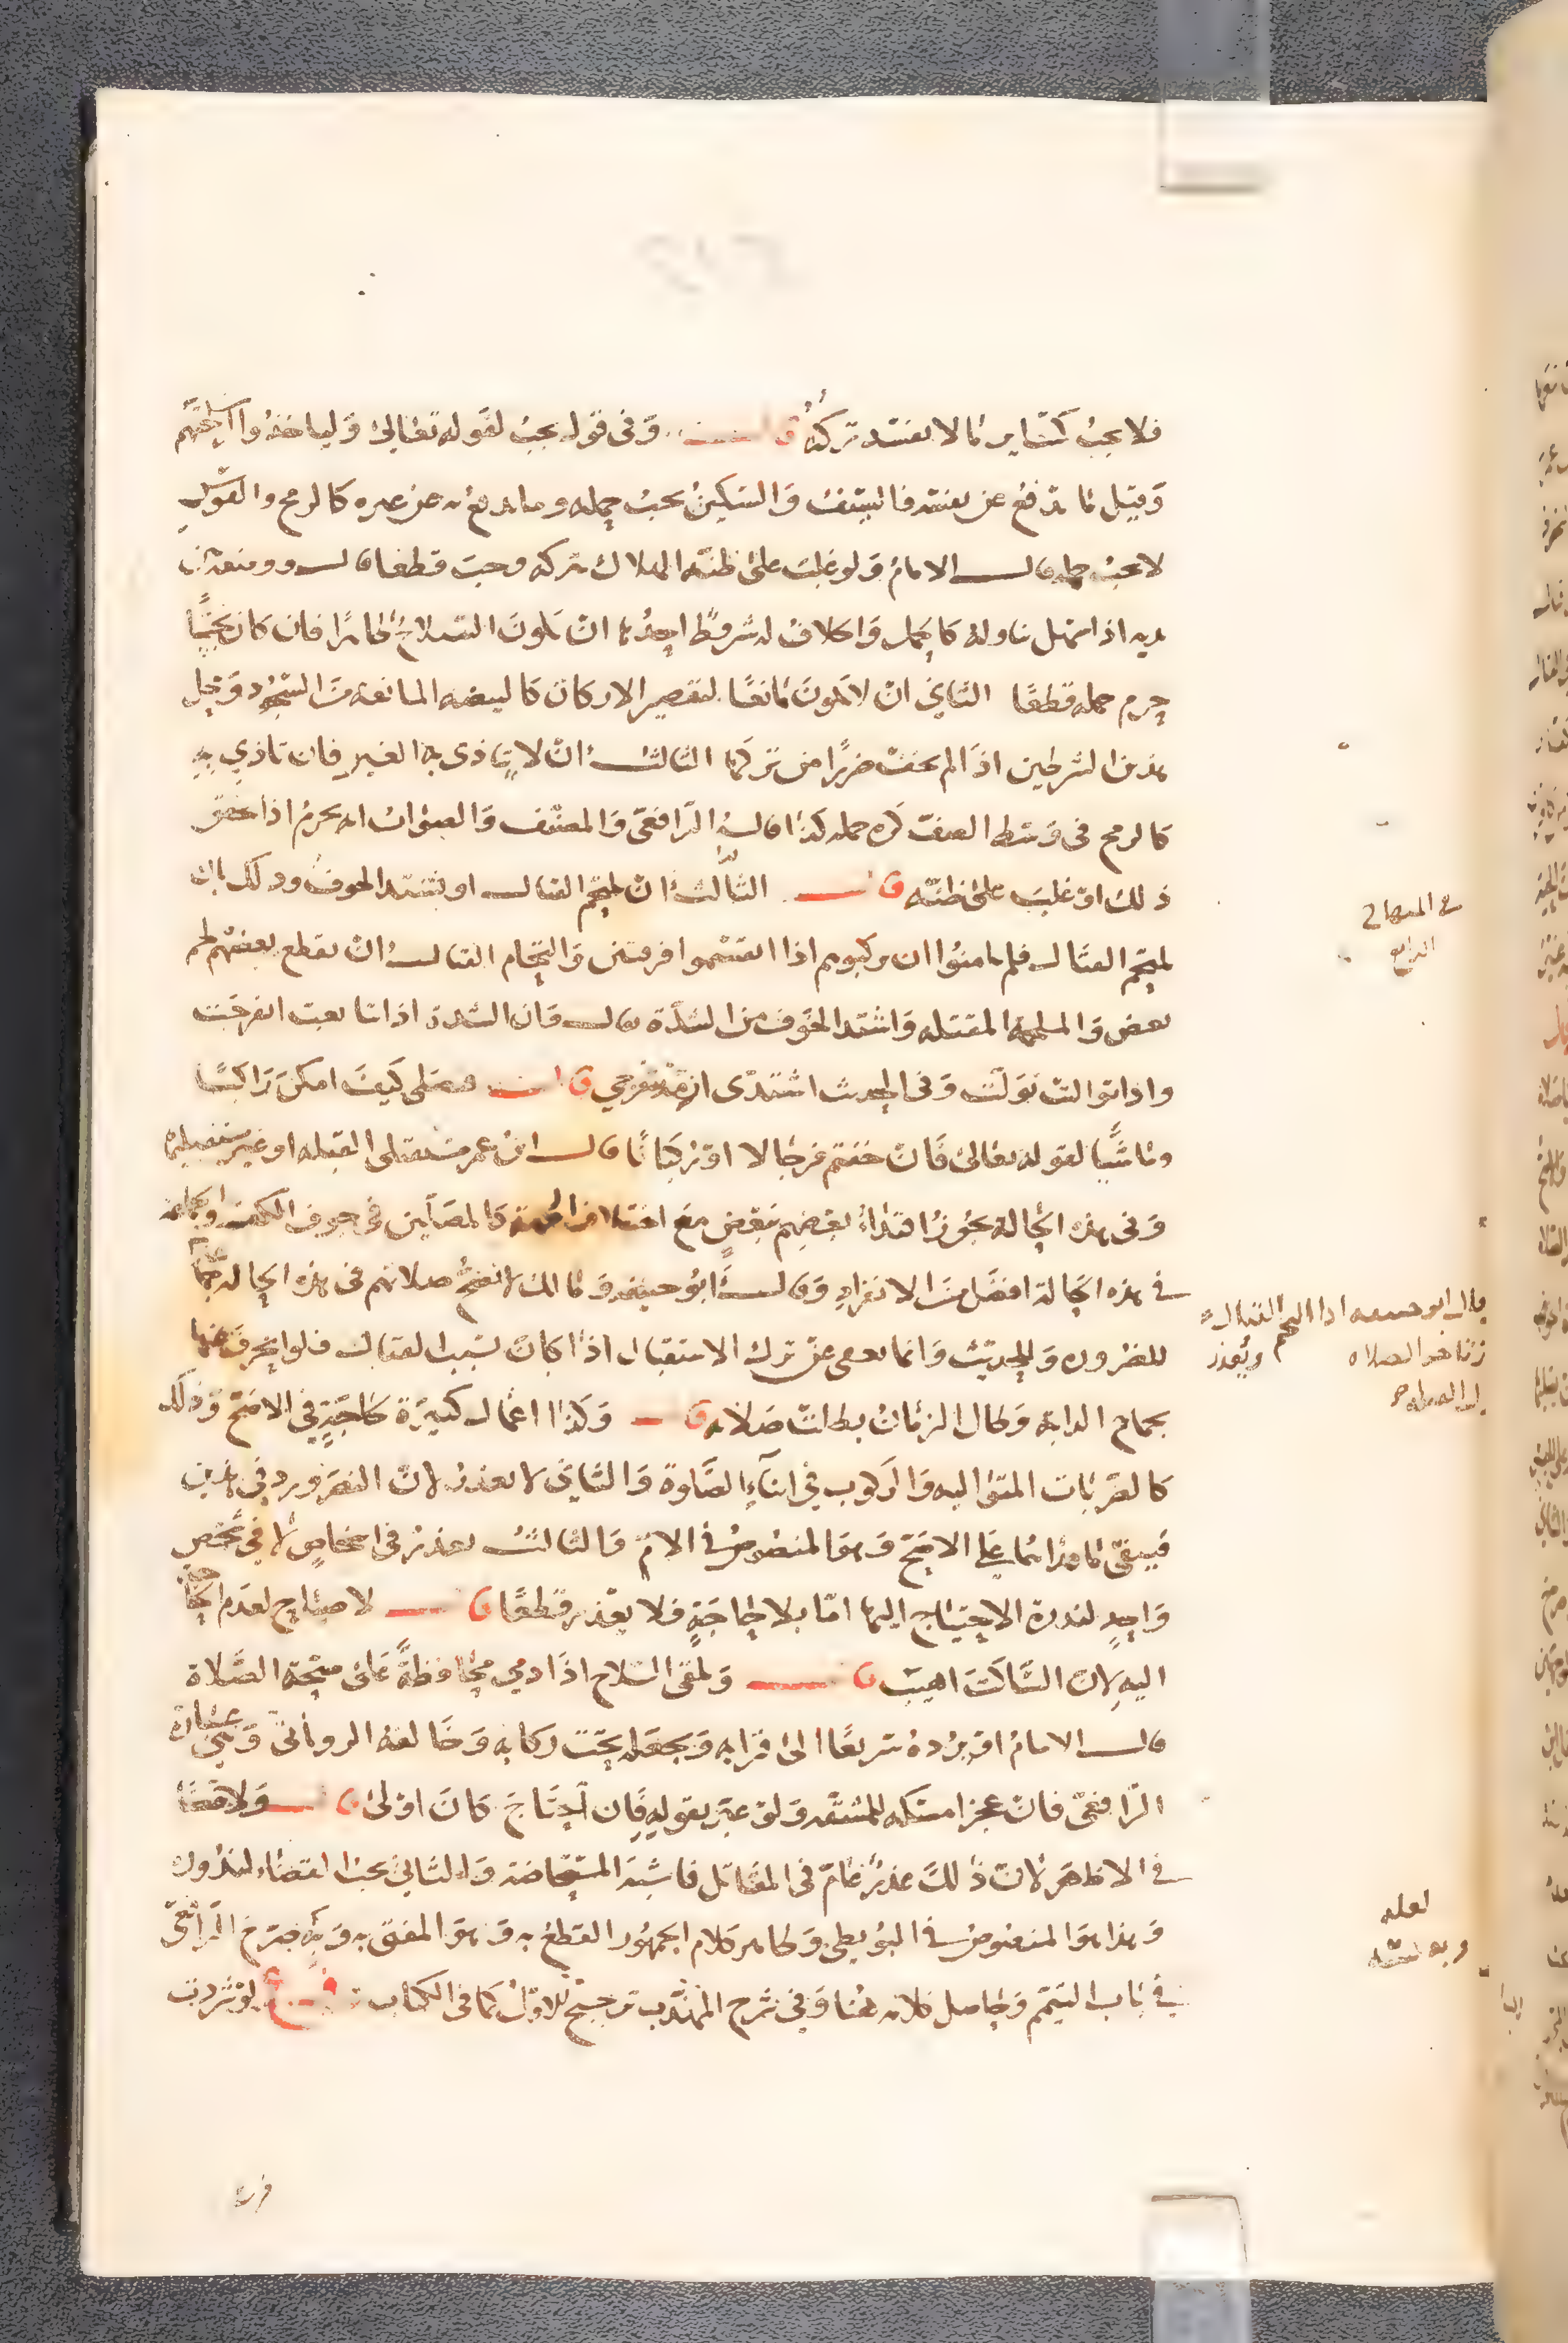 فلا يجب كسائر ما لا يفسد تركه قال وفي قول يجب لقوله تعالى وليأخذوا أسلحتهم
وقيل ما يدفع عن نفسه فالسيف والسكين يجب حمله وما يدفع به عن غيره كالرمح والقوس
لا يجب حمله قال الامام ولو غلب على ظنه الهلاك بتركه وجب قطعا قال ووضعه بين
يديه اذا سهل تناوله كالحمل والخلاف له شروط احدها ان يكون السلاح طاهرا فان كان نجسا
حرم حمله قطعا الثاني ان لا يكون مانعا لبعض الاركان كالبيضه المانعة من السجود ومحل
هذين الشرطين اذا لم يخف ضررا من تركها الثالث ان لا يتاذى به الغير فان تاذي به
كالرمح في وسط الصف كره حمله كذا قاله الرافعي والمصنف والصواب انه يحرم اذا تحقق
ذلك او غلب على ظنه قال الثالث ان يلتحم القتال او يشتد الخوف وذلك بان
يلتحم القتال فلم يامنوا ان يركبوهم اذا انقسموا فرقتين والتحام القتال ان يقطع بعضهم لحم
بعض والملحمة المقتله واشتد الخوف من الشدة يقال فان الشدة اذا تتابعت انفرجت
واذا توالت تولت وفي الحديث اشتدي ازمة تنفرجي قال فيصلي كيف امكن راكبا
وماشيا لقوله تعالى فان خفتم فرجالا او ركبانا قال ابن عمر مستقبلي القبله او غير مستقبليها
وفي هذه الحالة يجوز اقتداء بعضهم ببعض مع اختلاف الجهة كالمصلين في جوف الكعبة والجماعة
في هذه الحالة افضل من الانفراد وقال ابو حنيفه ومالك لا تصح صلاتهم في هذه الحاله جماعة
للضروره وللحديث وانما يعفى عن ترك الاستقبال اذا كان بسبب القتال فلو انحرف عنها
بجماح الدابة وطال الزمان بطلت صلاته قال وكذا اعمال كثيرة لحاجة في الاصح وذلك
كالضربات المتواليه والركوب في اثناء الصلوة والثاني لا يعذر لان النص ورد في هذين
فيبقى ما وراءهما على الاصح وهو المنصوص في الام والثالث يعذر في اشخاص لا في شخص
واحد لندرة الاحتياج اليها اما بلا حاجة فلا يعذر قطعا قال لا صياح لعدم الحاجة
اليه لان الساكت اهيب قال ويلقى السلاح اذا دمي محافظة على صحة الصلاة
قال الامام او يرده سريعا الى قرابه ويجعله تحت ركابه وخالفه الروياني وهي عبارة
الرافعي فان عجز امسكه للمشقه ولو عبر بقوله فان احتاج كان اولى قال ولا قضا
في الاظهر لان ذلك عذر عام في المقاتل فاشبه المستحاضة والثاني يجب القضاء لندوره
وهذا هو المنصوص في البويطي وظاهر كلام الجمهور القطع به وهو المفتى به وبه صرح الرافعي
في باب التيمم وحاصل كلامه هنا وفي شرح المهذب ترجيح للاول كما في الكتاب فرع لو شردت
في المنهاج
الرابع
قال ابو حنيفه اذا التحم القتال
تاخر الصلاه ويعذر
لعله